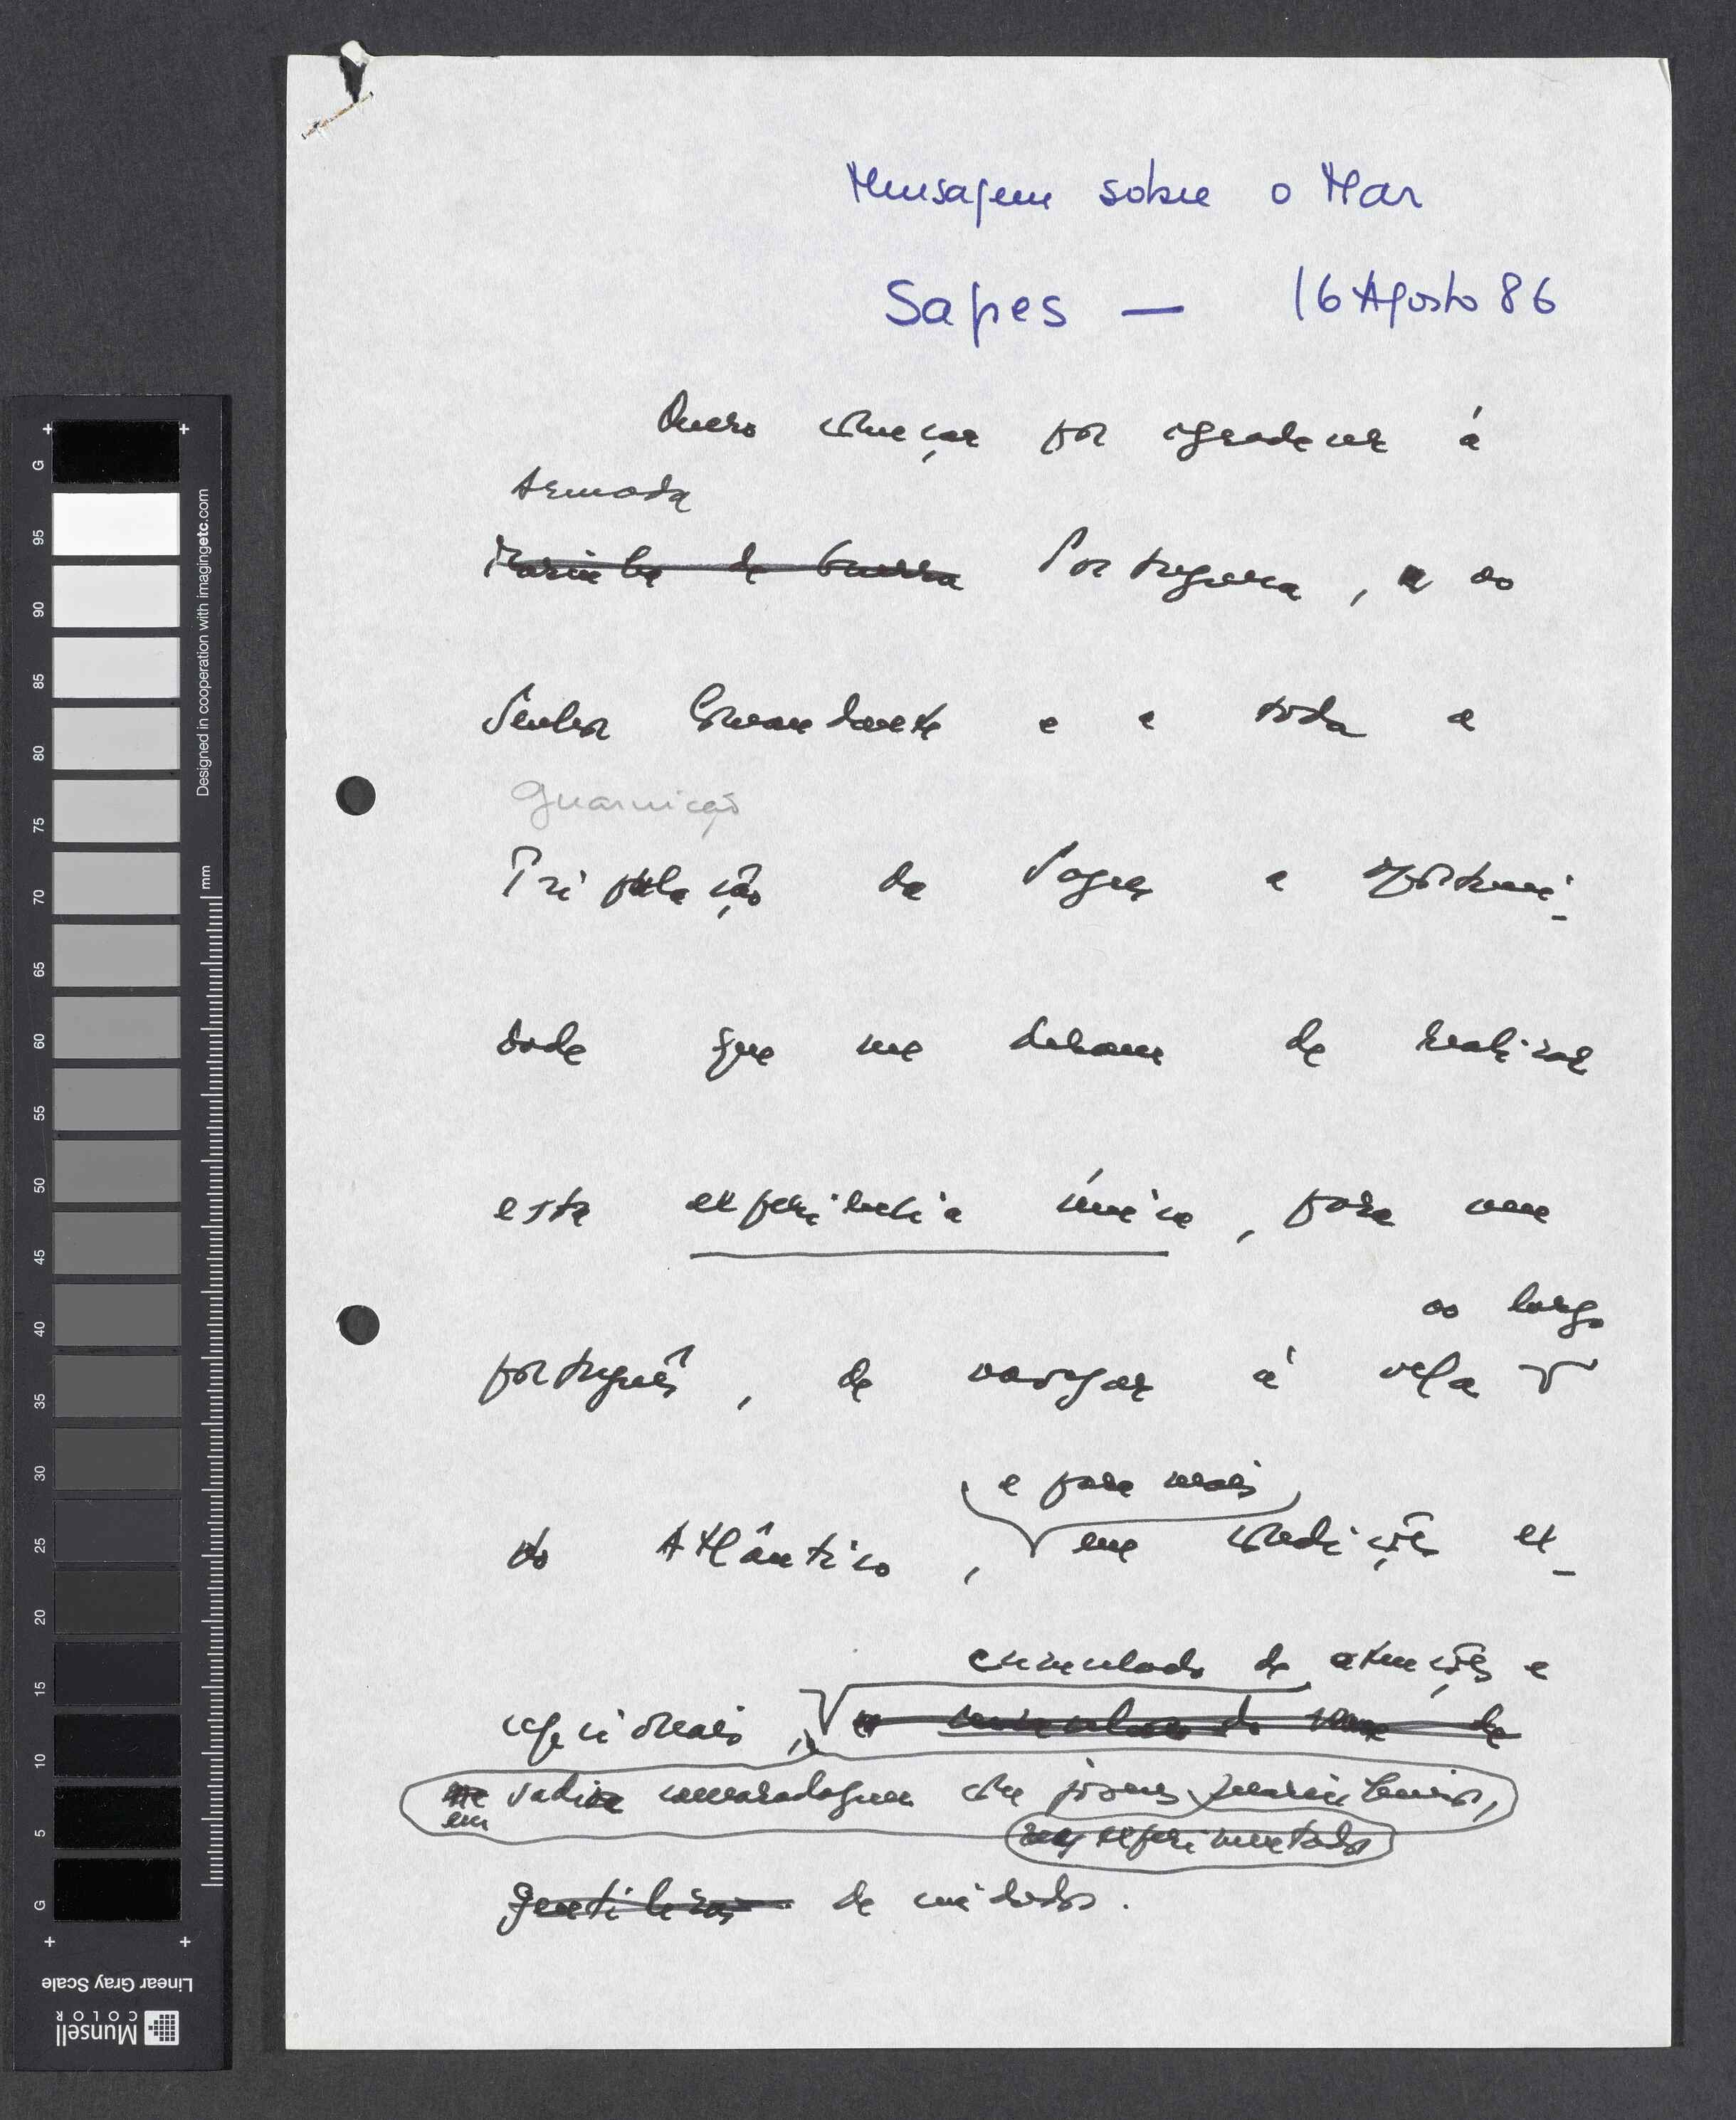 Mensagem sobre o Mar
Sagres — 16 Agosto 86
Quero começar por agradecer à
Armada
Marinha de Guerra Portuguesa, ao
Senhor Comandante e a toda a
Guarnição
Tripulação da Sagres a oportuni-
dade que me deram de realizar
esta experiência única, para um
ao largo
português, de navegar à vela
do Atlântico,
e para mais
em condições ex-
cumulado de atenções e
cepcionais,
em sadia camaradagem com jovens marinheiros,
experimentados
gentilezas de cuidados.
G 95 90 85 80 75 70 65 60 55 50 45 40 35 30 25 20 15 10 5 G
mm
Designed in cooperation with imagingetc.com
Linear Gray Scale
Munsell
COLOR